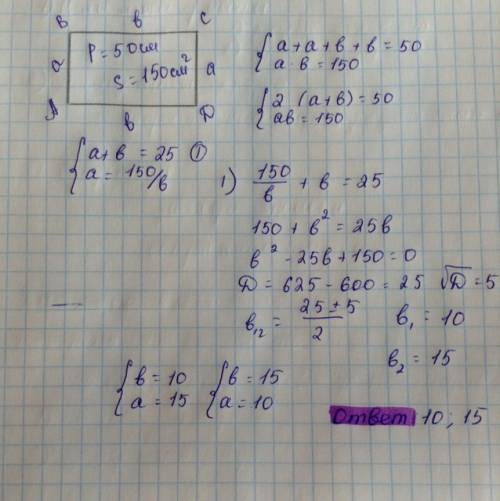 В в С
P = 50 см
а S = 150 см² а
А в D
{ а + а + в + в = 50
а · в = 150
{ 2 (а + в) = 50
ав = 150
{ а + в = 25 ①
а = 150/в
1) 150/в + в = 25
150 + в² = 25в
в² - 25в + 150 = 0
D = 625 - 600 = 25 √D = 5
в₁₂ = (25 ± 5)/2 в₁ = 10
в₂ = 15
{ в = 10 { в = 15
а = 15 а = 10
Ответ 10; 15